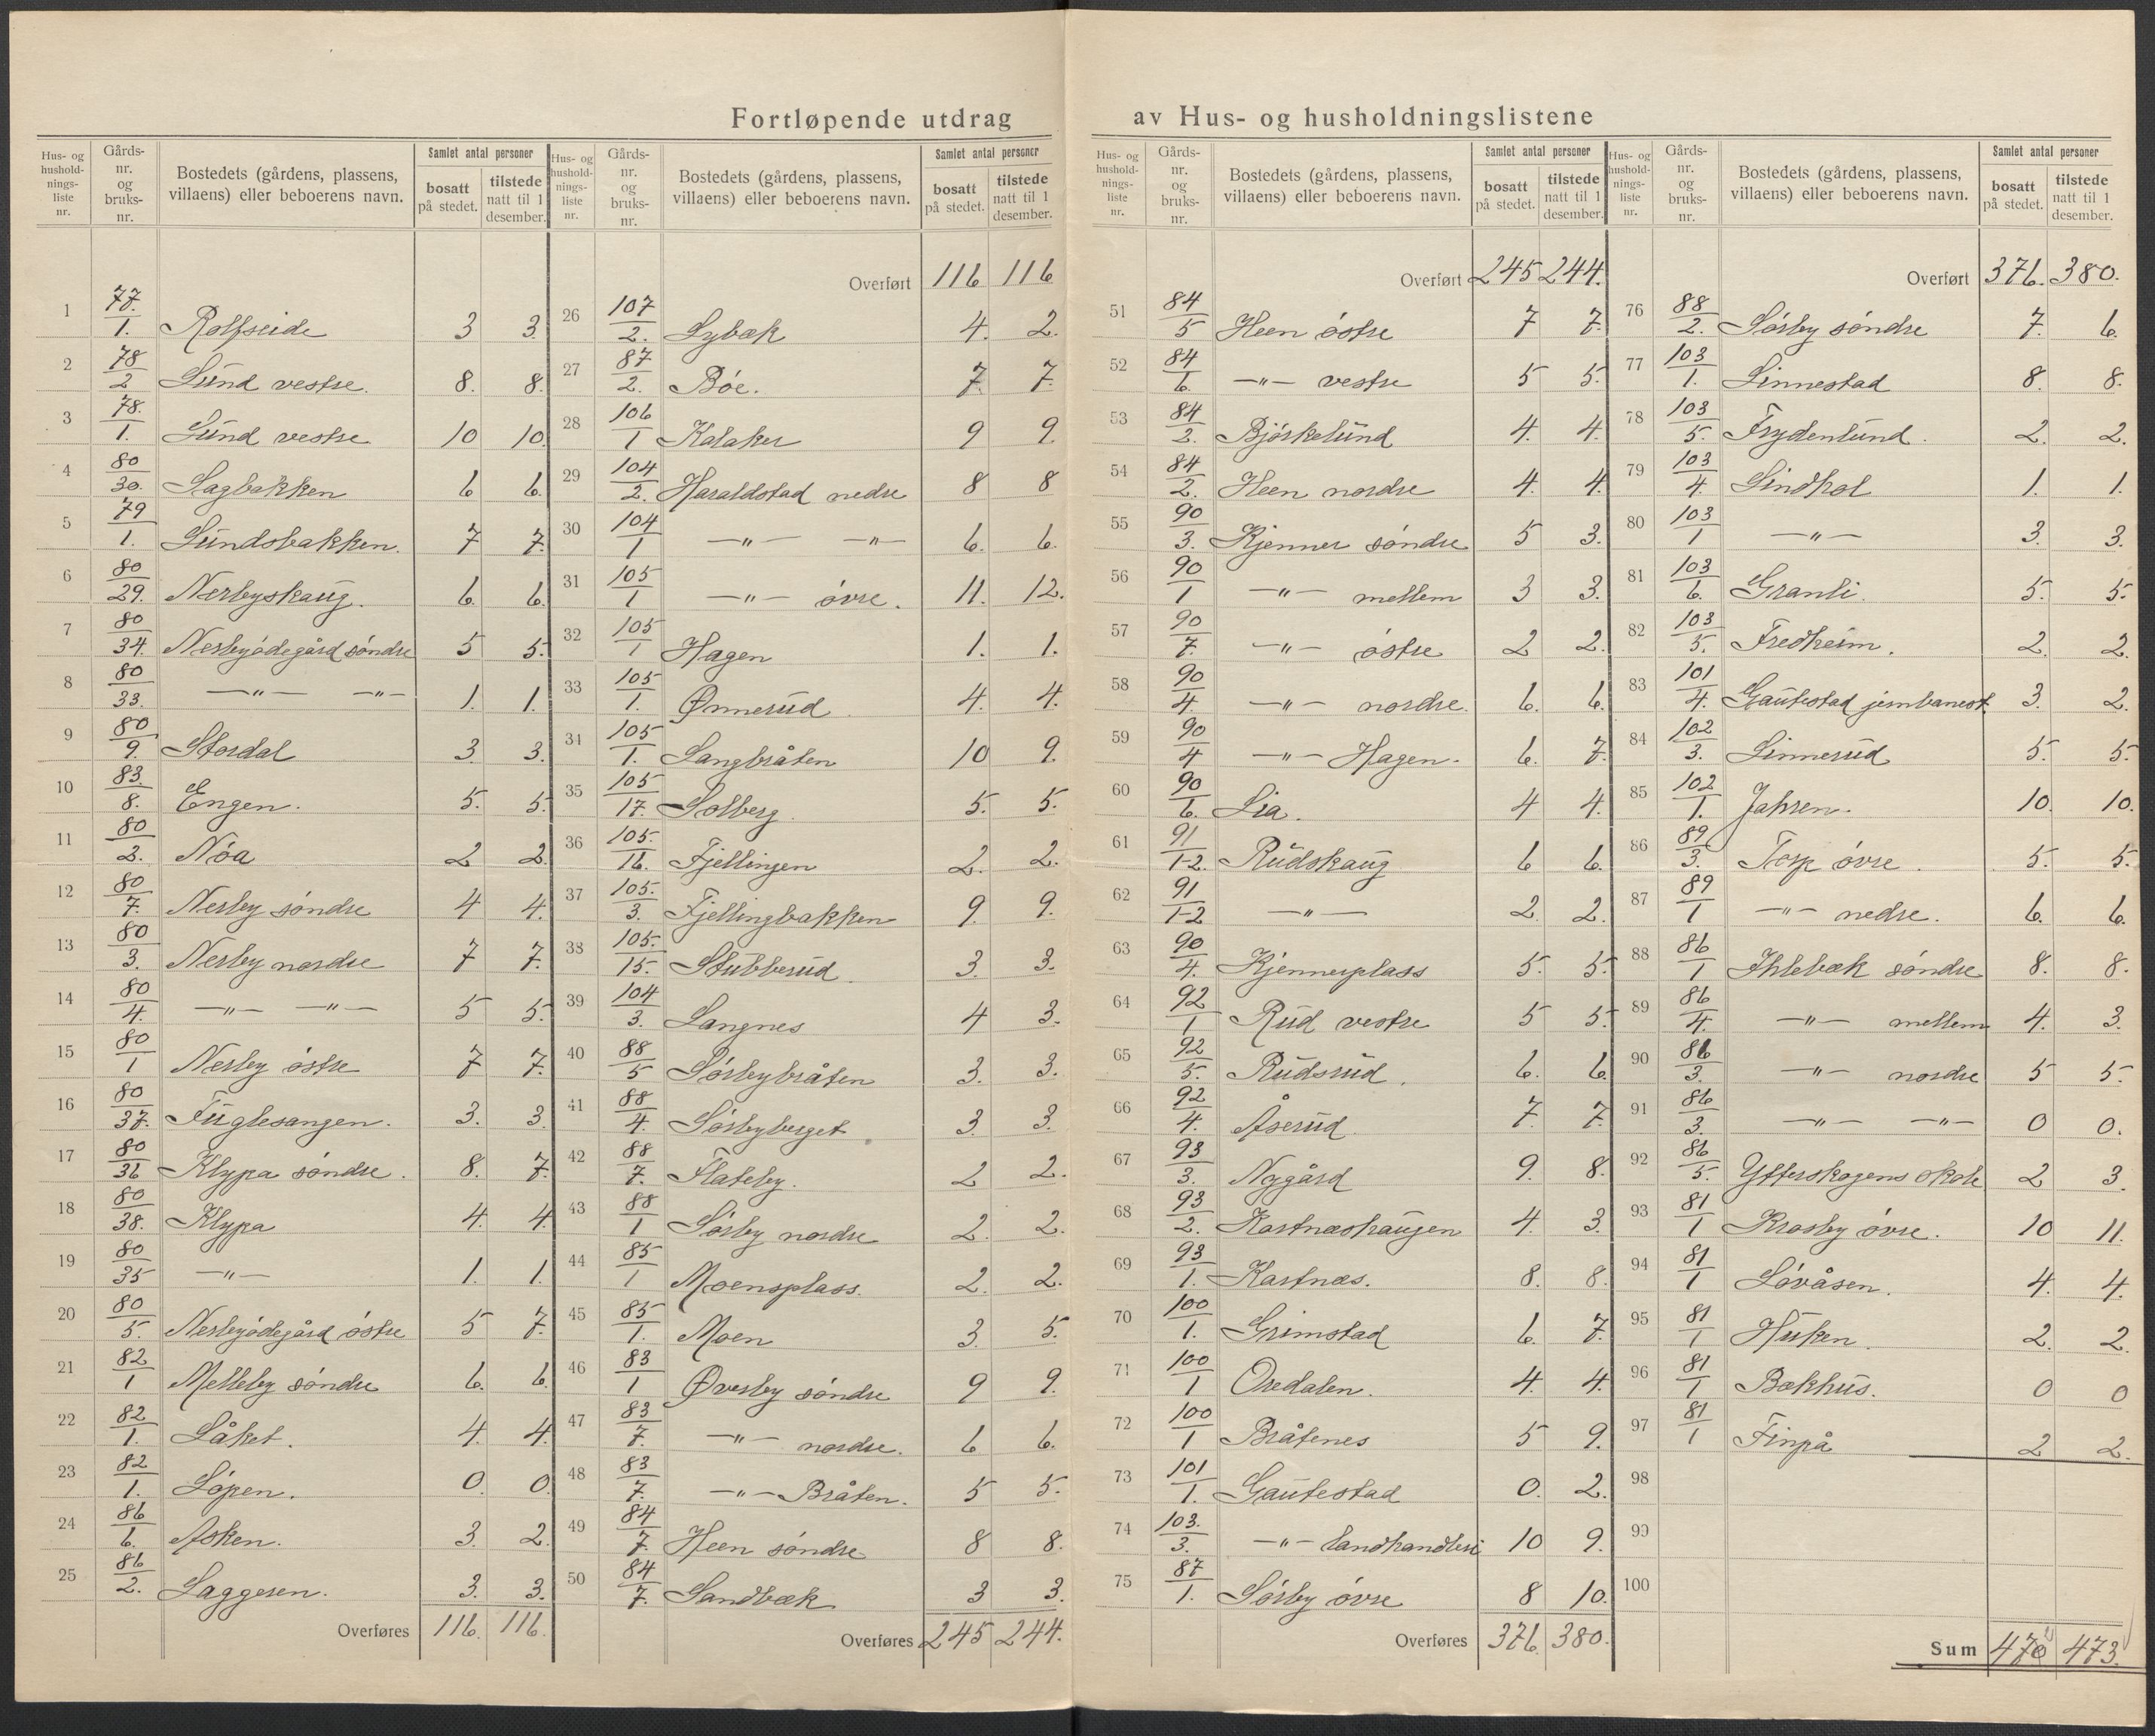 Fortløpende utdrag av Hus- og husholdningslistene
Hus- og hushold- nings- liste nr. | Gårds- nr. og bruks- nr. | Bostedets (gårdens, plassens, villaens) eller beboerens navn. | Samlet antal personer | bosatt på stedet. | tilstede natt til 1 desember.
1 77./1. Rolfseide 3 3.
2 78/2 Lund vestre. 8. 8.
3 78./1. Lund vestre 10 10.
4 80/30. Sagbakken 6 6.
5 79/1. Lundsbakken. 7 7.
6 80/29. Nerbyskaug. 6. 6.
7 80/34. Nerbyødegård søndre 5 5.
8 80/33. —"— —"— 1. 1.
9 80/9. Stordal 3. 3.
10 83./8. Engen. 5. 5.
11 80/2. Nøa 2 2.
12 80/7. Nerby søndre 4 4.
13 80/3. Nerby nordre 7 7.
14 80/4. —"— —"— 5 5.
15 80/1 Nerby østre 7 7.
16 80/37. Fuglesangen. 3. 3.
17 80/36 Klypa søndre. 8. 7.
18 80/38. Klypa 4. 4.
19 80/35 —"— 1. 1.
20 80/5. Nerbyødegård østre 5 7.
21 82/1 Melleby søndre 6. 6.
22 82/1. Låket. 4. 4.
23 82/1. Løpen. 0. 0.
24 86/6. Asken. 3. 2.
25 86/2. Laggeren. 3. 3.
Overføres 116. 116.
Overført 116 116
26 107/2. Lybæk 4. 2.
27 87/2. Bøe. 7. 7.
28 106/1 Kalaker 9 9.
29 104/2. Haraldstad nedre 8 8
30 104/1 —"— —"— 6. 6.
31 105/1 —"— øvre. 11. 12.
32 105/1 Hagen 1. 1.
33 105/1. Ønnerud. 4. 4.
34 105/1. Langbråten 10 9.
35 105/17. Solberg. 5. 5.
36 105./16. Fjellingen 2. 2.
37 105./3. Fjellingbakken 9. 9.
38 105./15. Stubberud. 3. 3.
39 104/3. Langnes 4 3.
40 88/5 Sørbybråten 3. 3.
41 88/4. Sørbyberget 3 3.
42 88/7. Flateby. 2 2.
43 88/1 Sørby nordre 2. 2.
44 85/1 Moensplass. 2. 2.
45 85/1. Moen 3. 5.
46 83/1 Øverby søndre 9 9.
47 83/7. —"— nordre. 6 6.
48 83/7. —"— Bråten. 5 5.
49 84/7. Heen søndre 8 8.
50 84/7. Sandbæk 3 3.
Overføres 245 244.
Hus- og hushold- nings- liste nr. | Gårds- nr. og bruks- nr. | Bostedets (gårdens, plassens, villaens) eller beboerens navn. | Samlet antal personer | bosatt på stedet. | tilstede natt til 1 desember.
Overført 245 244.
51 84/5 Heen østre 7 7.
52 84/6. —"— vestre 5 5.
53 84/2. Bjørkelund 4. 4.
54 84/2. Heen nordre 4. 4.
55 90/3. Kjenner søndre 5 3.
56 90/1 —"— mellem 3 3.
57 90/7. —"— østre 2 2.
58 90/4. —"— nordre. 6. 6.
59 90/4 —"— Hagen. 6. 7.
60 90/6. Lia. 4 4.
61 91/1-2. Rudskaug 6 6.
62 91/1-2 —"— 2. 2.
63 90/4. Kjennerplass 5. 5.
64 92/1 Rud vestre 5 5.
65 92/5. Rudsrud. 6. 6.
66 92/4. Åserud. 7. 7.
67 93/3. Nygård 9. 8.
68 93/2. Kastnæshaugen 4. 3.
69 93/1. Kastnæs. 8. 8.
70 100/1. Grimstad 6. 7.
71 100/1 Oredalen. 4. 4.
72 100/1 Bråtenes 5 9.
73 101/1. Gautestad 0. 2.
74 103./3. —"— landhandleri 10 9.
75 87/1. Sørby øvre 8 10.
Overføres 376 380.
Overført 376. 380.
76 88/2. Sørby søndre 7. 6.
77 103/1. Linnestad 8. 8.
78 103/5. Frydenlund. 2. 2.
79 103/4. Lindhol 1. 1.
80 103/1 —"— 3. 3.
81 103/6. Granli. 5. 5.
82 103/5. Fredheim. 2. 2.
83 101/4. Gautestad jernbanest. 3. 2.
84 102/3. Linnerud 5. 5.
85 102/1. Jahren. 10. 10.
86 89/3. Torp øvre. 5. 5.
87 89/1 —"— nedre. 6. 6.
88 86/1 Ihlebæk søndre 8. 8.
89 86/4. —"— mellem 4. 3.
90 86/3. —"— nordre 5 5.
91 86/3. —"— —"— 0 0.
92 86/5. Ytterskogens skole 2 3.
93 81/1 Krosby øvre. 10 11.
94 81/1 Løvåsen. 4. 4.
95 81/1 Huken. 2. 2.
96 81/1 Bækhus. 0 0
97 81/1 Finpå 2 2.
98
99
100
Sum 470 473.